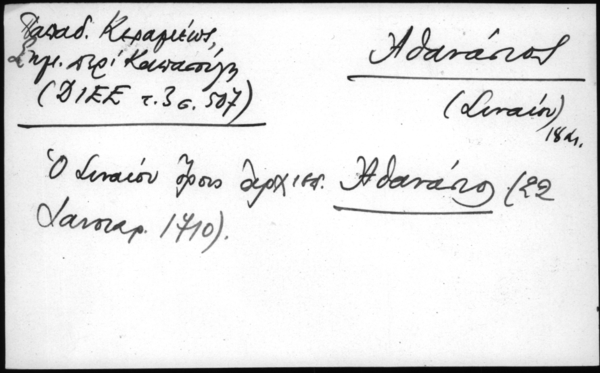 Παπαδ. Κεραμέως,
Σημ. περί Καπασούλη
(ΔΙΕΕ τ. 3 σ. 507)
Ἀθανάσιος
(Σιναίου)
18 αι.
Ὁ Σιναίου ὄρους ἀρχιεπ. Ἀθανάσιος (22
Ιανουαρ. 1710).